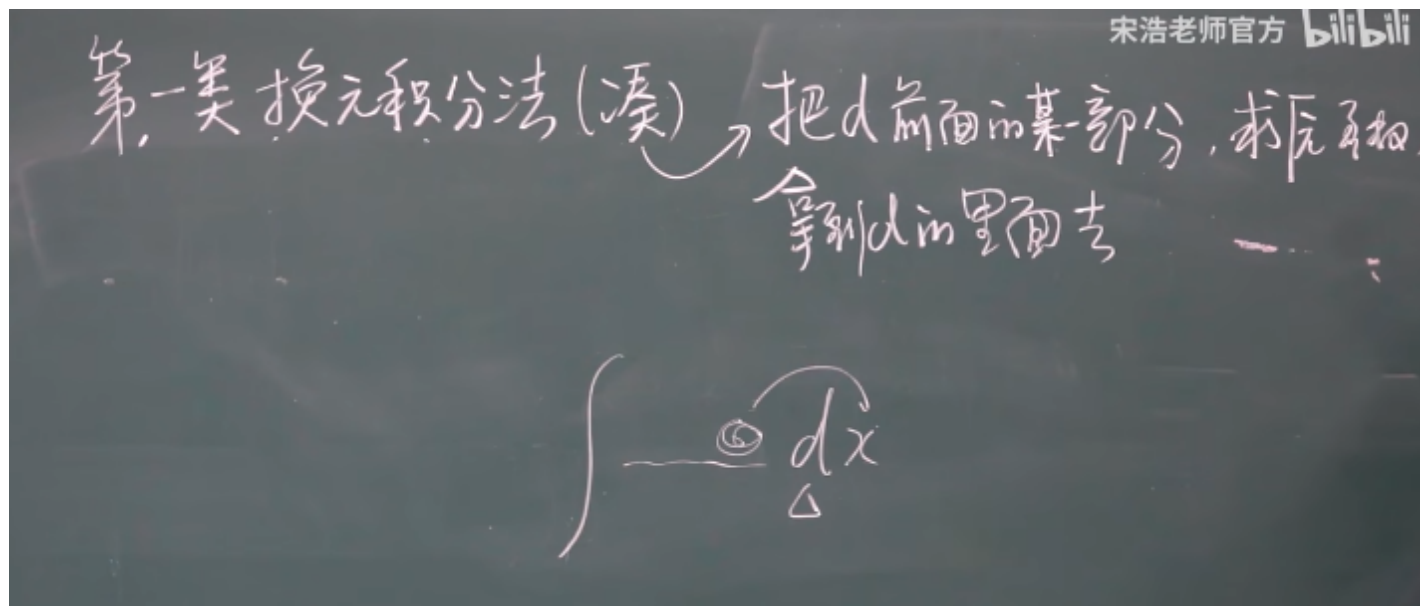 宋浩老师官方 bilibili
第一类换元积分法(凑) 把d前面的某一部分,求原函数,
拿到d的里面去
∫ dx